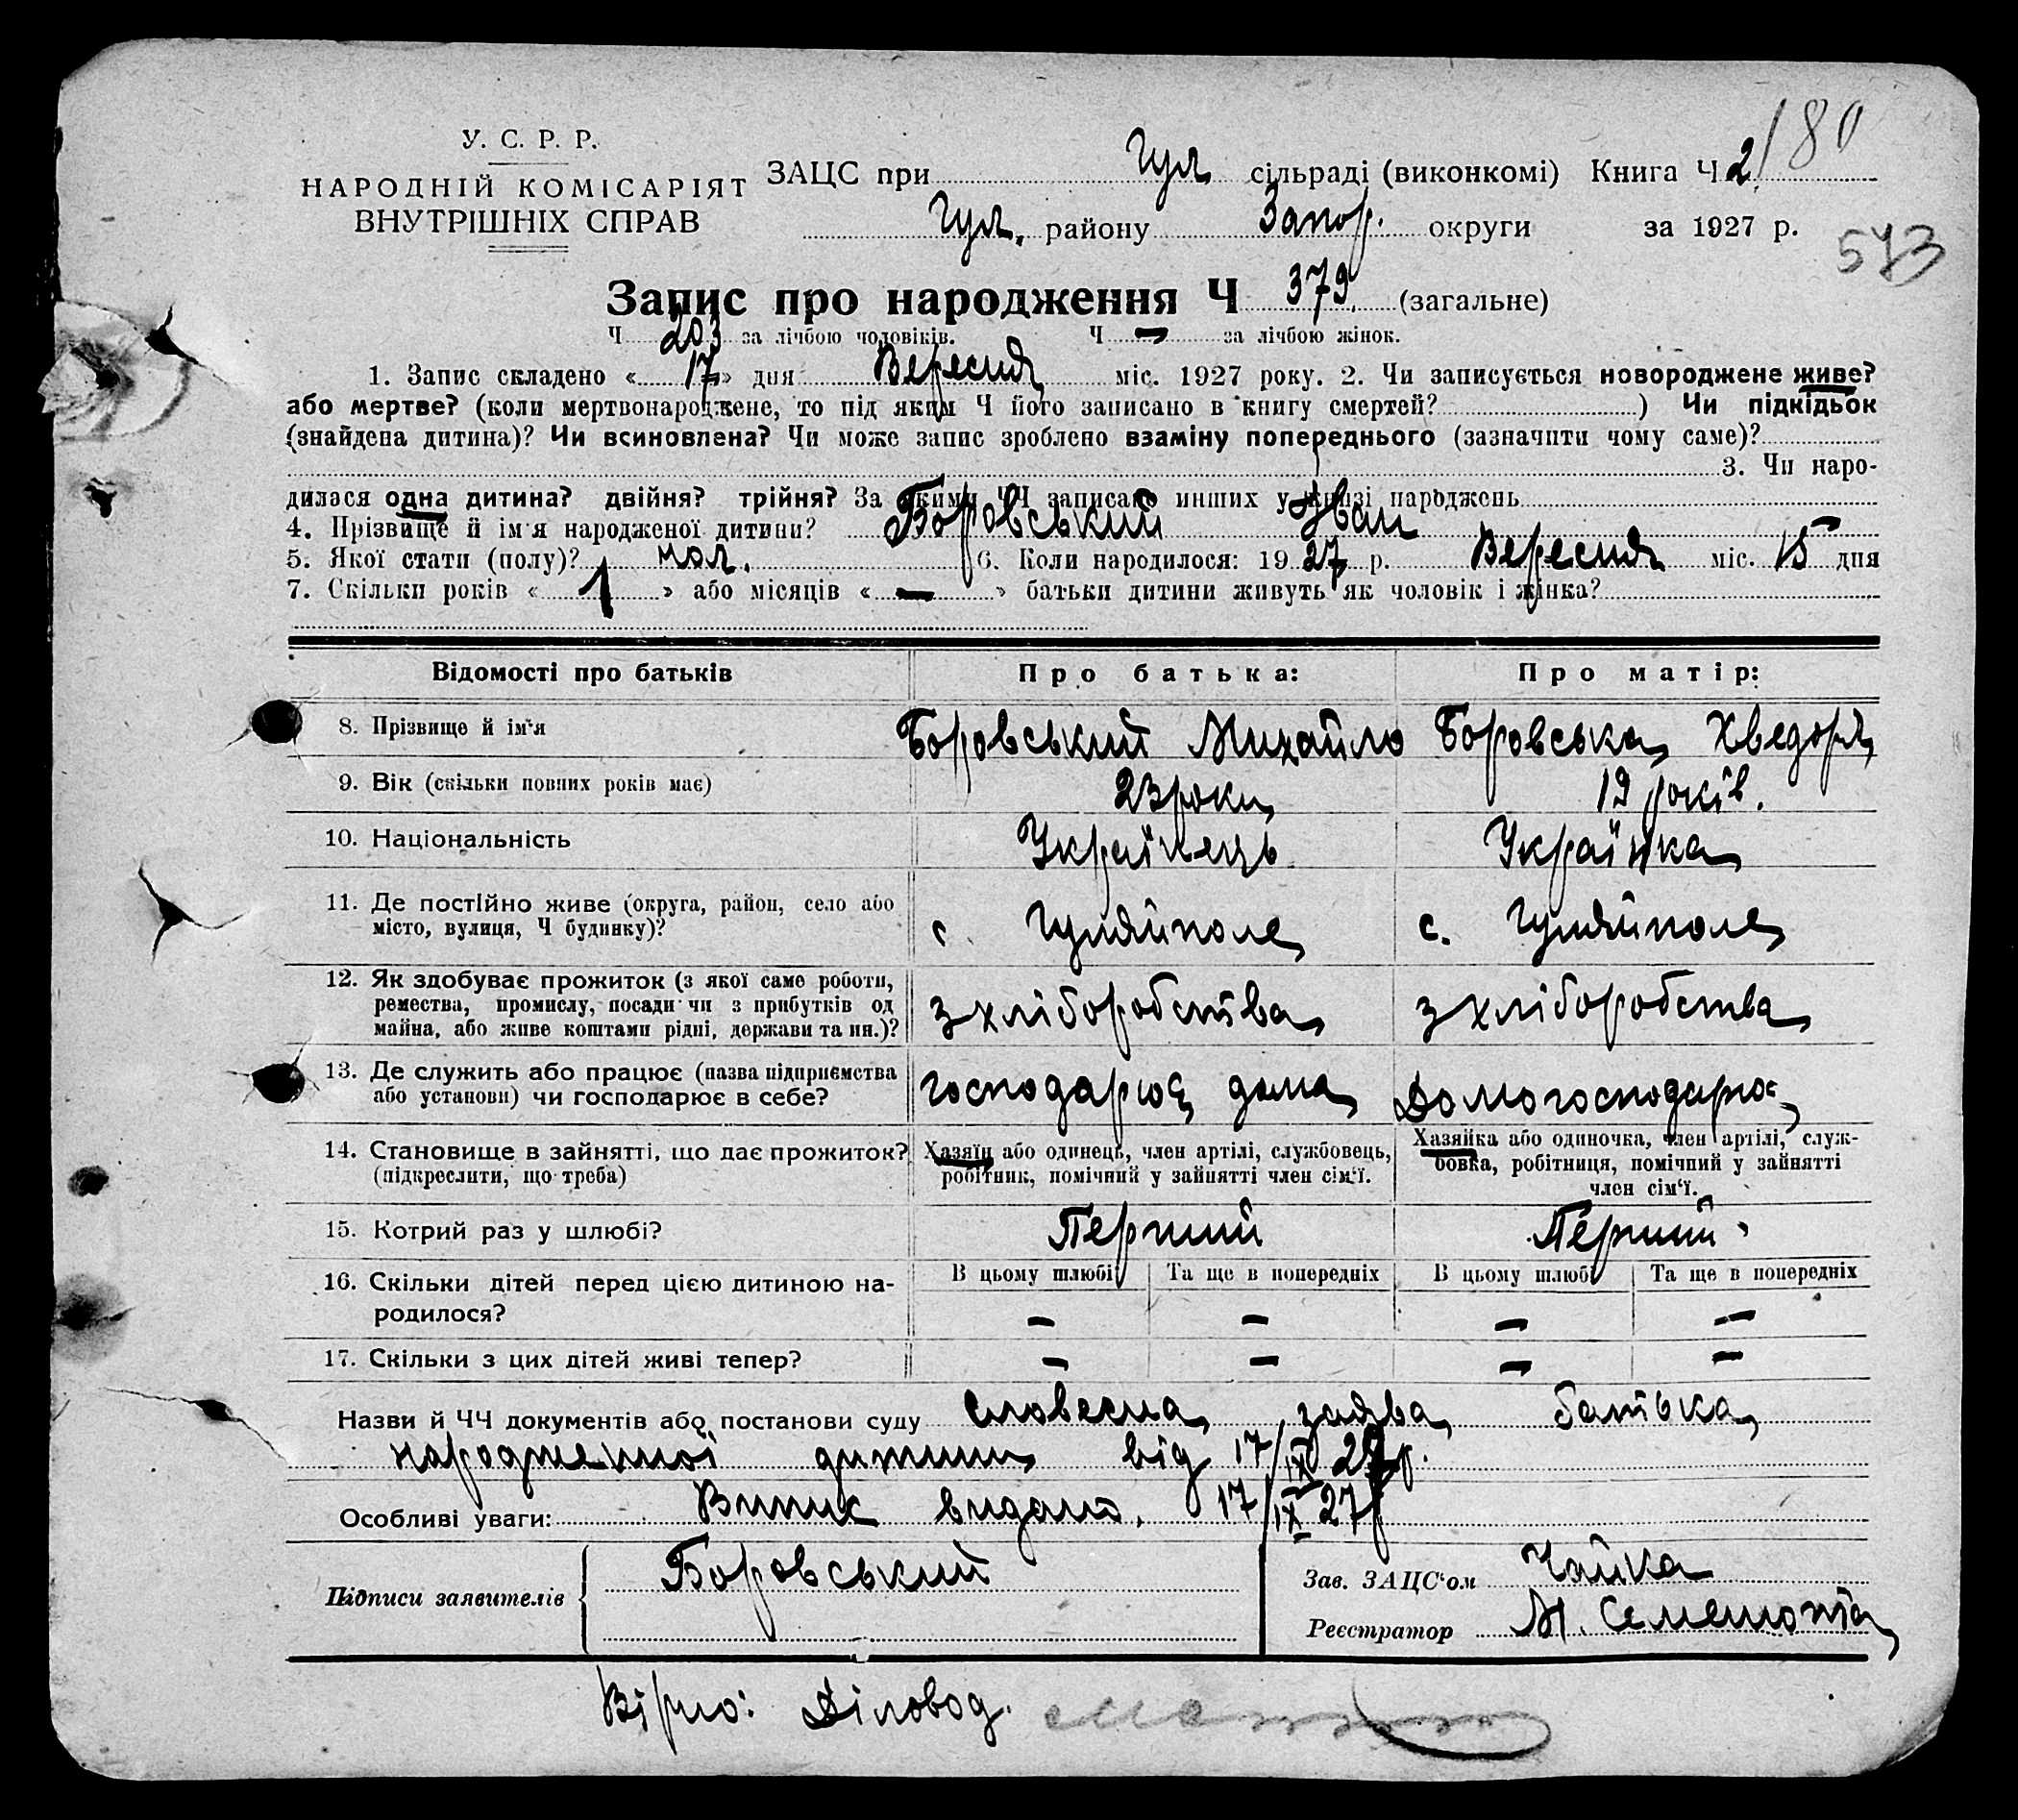 180
У. С. Р. Р.
НАРОДНІЙ КОМІСАРІЯТ
ВНУТРІШНІХ СПРАВ
ЗАЦС при Гул сільраді (виконкомі) Книга Ч 2
Гул. району Запор. округи за 1927 р.
573
Запис про народження Ч 379. (загальне)
Ч 203 за лічбою чоловіків. Ч — за лічбою жінок.
1. Запис складено «17» дня Вересня міс. 1927 року. 2. Чи записується новороджене живе?
або мертве? (коли мертвонароджене, то під яким Ч його записано в книгу смертей? ) Чи підкідьок
(знайдена дитина)? Чи всиновлена? Чи може запис зроблено взаміну попереднього (зазначити чому саме)?
3. Чи наро-
дилася одна дитина? двійня? трійня? За якими ЧЧ записано инших у книзі народжень —
4. Прізвище й ім'я народженої дитини? Боровський Іван
5. Якої стати (полу)? чол. 6. Коли народилося: 1927 р. Вересня міс. 15 дня
7. Скільки років «1» або місяців «—» батьки дитини живуть як чоловік і жінка?
Відомості про батьків Про батька: Про матір:
8. Прізвище й ім'я Боровський Михайло Боровська Хведора
9. Вік (скільки повних років має) 23 роки 19 років.
10. Національність Українець Українка
11. Де постійно живе (округа, район, село або
місто, вулиця, Ч будинку)? с. Гуляйполе с. Гуляйполе
12. Як здобуває прожиток (з якої саме роботи,
ремества, промислу, посади чи з прибутків од
майна, або живе коштами рідні, держави та ин.)? з хліборобства з хліборобства
13. Де служить або працює (назва підприємства
або установи) чи господарює в себе? господарює дома Домогосподарює
14. Становище в зайнятті, що дає прожиток?
(підкреслити, що треба)
Хазяїн або одинець, член артілі, службовець,
робітник, помічний у зайнятті член сім'ї.
Хазяйка або одиночка, член артілі, служ-
бовка, робітниця, помічний у зайнятті
член сім'ї.
15. Котрий раз у шлюбі? Перший Перший
16. Скільки дітей перед цією дитиною на-
родилося?
В цьому шлюбі Та ще в попередніх В цьому шлюбі Та ще в попередніх
— — — —
17. Скільки з цих дітей живі тепер? — — — —
Назви й ЧЧ документів або постанови суду словесна заява батька
народженної дитини від 17/IX 27р.
Особливі уваги: Випис видано. 17/IX 27р
Підписи заявителів Боровський
Зав. ЗАЦС'ом Чайка
Реєстратор М.
Вірно: Діловод.